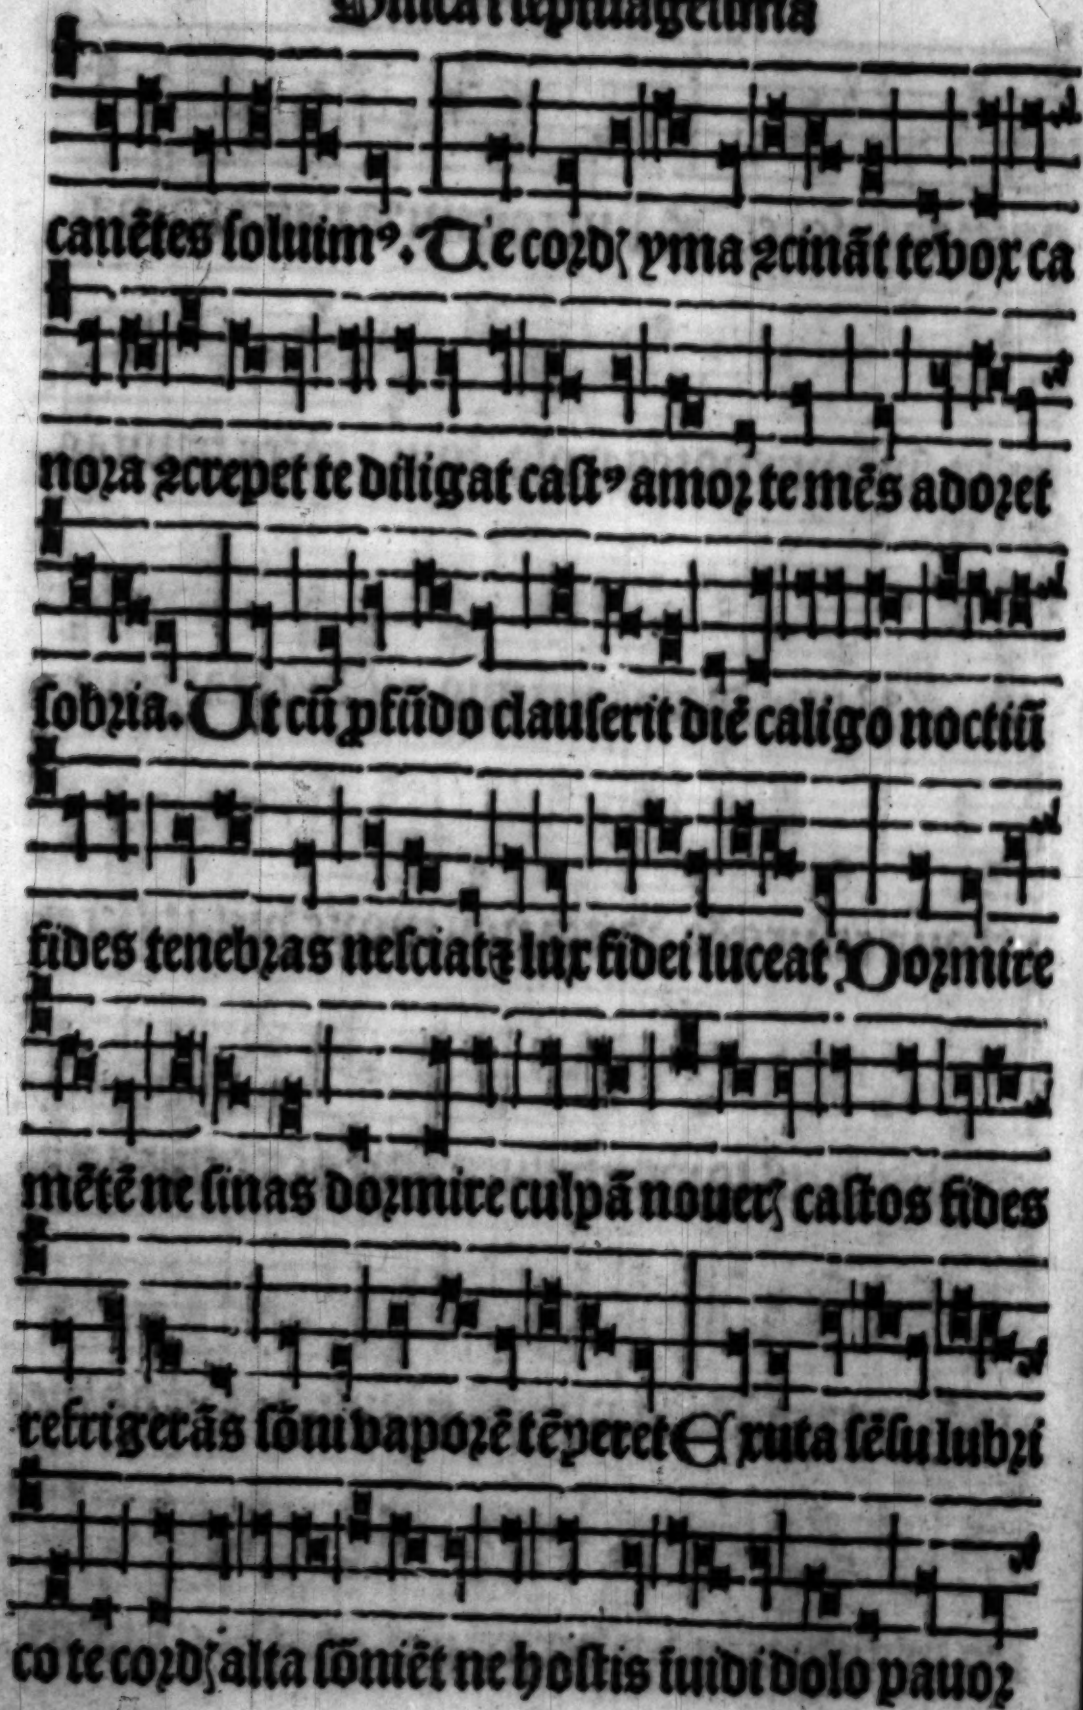 Dñica i septuagesima
canētes soluimꝰ. Te cordꝭ yma ꝯcināt te vox ca
nora ꝯcrepet te diligat castꝰ amor te mēs adoret
sobria. Ut cū ꝓfūdo clauserit diē caligo noctiū
fides tenebras nesciat ⁊ lux fidei luceat Dormire
mētē ne sinas dormire culpā nouerꝭ castos fides
refrigerās sōni vaporē tēꝑeret Exuta sēsu lubri
co te cordꝭ alta sōniēt ne hostis īuidi dolo pauor